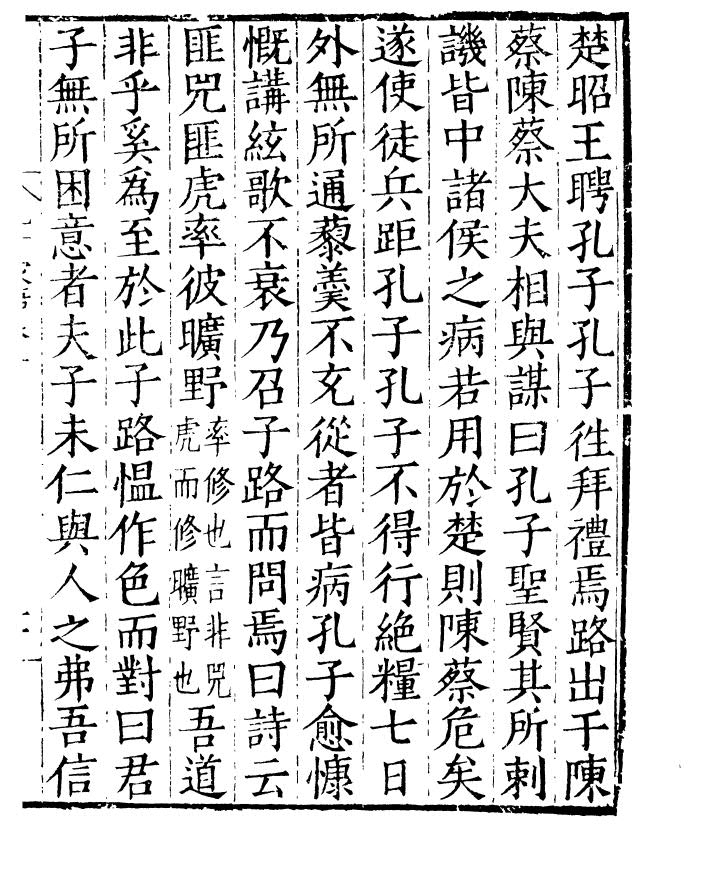 楚昭王聘孔子孔子徃拜禮焉路出于陳
蔡陳蔡大夫相與謀曰孔子聖賢其所刺
譏皆中諸侯之病若用於楚則陳蔡危矣
遂使徒兵距孔子孔子不得行絶糧七日
外無所通藜羹不充從者皆病孔子愈慷
慨講絃歌不衰乃召子路而問焉曰詩云
匪兕匪虎率彼曠野率修也言非兕虎而修曠野也吾道
非乎奚爲至於此子路愠作色而對曰君
子無所困意者夫子未仁與人之弗吾信